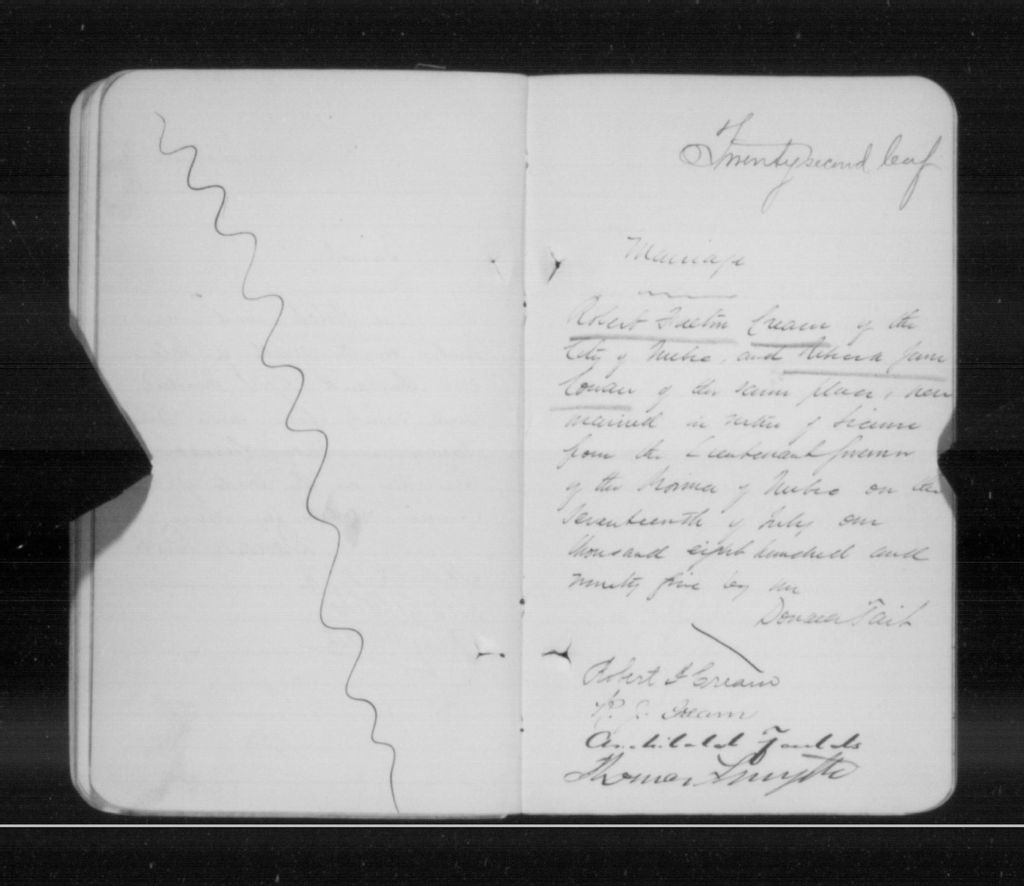 Twenty second leaf
Marriage
Robert Cream of the
City of Quebec, and Rebecca Jane
Cowan of the same place, were
married in virtue of License
from the Lieutenant Governor
of the Province of Quebec on the
Seventeenth of July, one
thousand eight hundred and
ninety five by me
Donald Tait
Robert F Cream
R. J. Cream
Archibald Foulds
Thomas Smyth